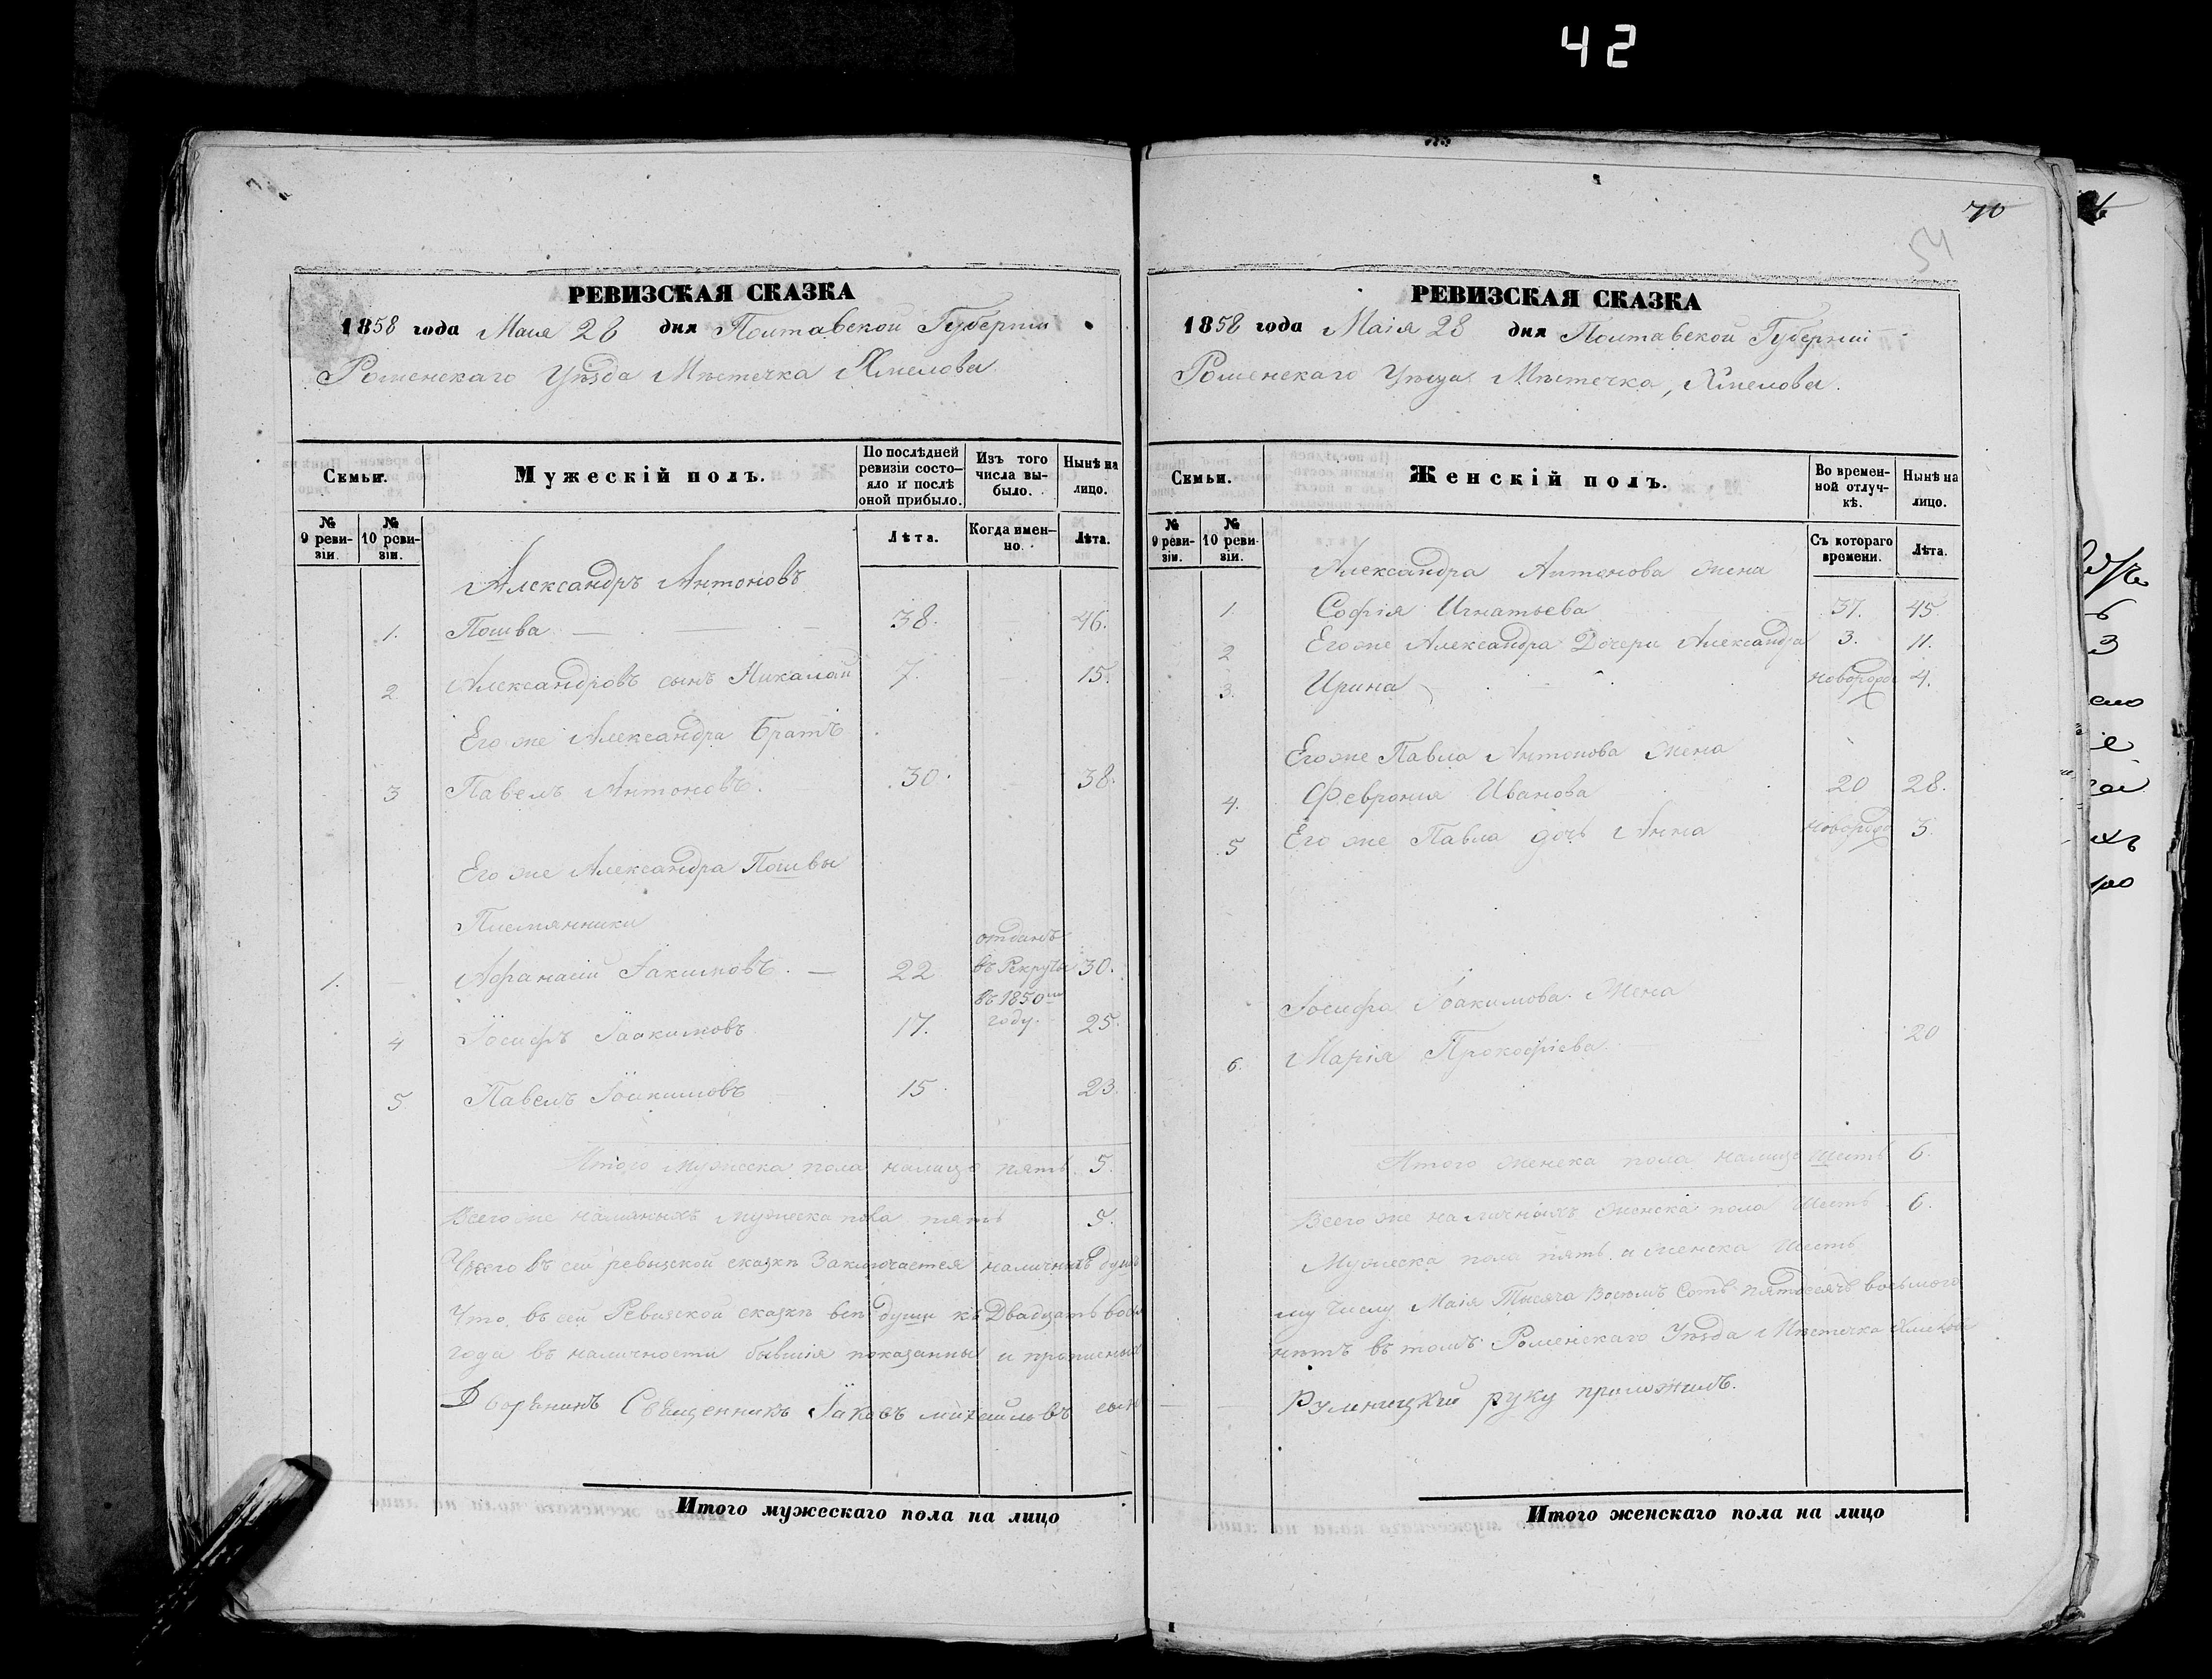 42
РЕВИЗСКАЯ СКАЗКА
1858 года Маія 28 дня Полтавской Губерніи
Роменскаго Уѣзда Мѣстечка Хмелова
Семьи.
Мужескій полъ.
По послѣдней ревизіи состо-
яло и послѣ
оной прибыло.
Изъ того
числа вы-
было.
Нынѣ на
лицо.
№
9 реви-
зіи.
№
10 реви-
зіи.
Лѣта.
Когда имен-
но.
Лѣта.
Александръ Антоновъ
1. Пошва 38. 46.
2. Александровъ сынъ Никалай 7. 15.
Его же Александра Братъ
3 Павелъ Антоновъ. 30. 38.
Его же Александра Пошвы
Племянники
1. Афанасій Іакимовъ. 22 отданъ въ Рекруты въ 1850 году. 30.
4 Іосифъ Іоакимовъ 17. 25.
5 Павелъ Іоакимовъ 15 23.
Итого мужеска пола налицо пять. 5.
Всего же наличныхъ мужеска пола пять 5.
Всего въ сей ревизской сказкѣ Заключается наличныхъ душъ
Что въ сей Ревизской сказкѣ всѣ души къ Двадцать
года въ наличности бывшія показанны и
Дворянинъ Священникъ Іаковъ сынъ
Итого мужескаго пола на лицо
70
54
РЕВИЗСКАЯ СКАЗКА
1858 года Маія 28 дня Полтавской Губерніи
Роменскаго Уѣзда Мѣстечка, Хмелова.
Семьи.
Женскій полъ.
Во времен-
ной отлуч-
кѣ.
Нынѣ на
лицо.
№
9 реви-
зіи.
№
10 реви-
зіи.
Съ котораго
времени.
Лѣта.
Александра Антонова жена
1. Софія Игнатьева 37. 45.
2 Его же Александра Дочери Александра 3. 11.
3. Ирина 4.
Его же Павла Антонова жена
4. Февронія Иванова 20 28.
5 Его же Павла дочь Анна 3.
Іосифа Іоакимова Жена
6. Марія Прокофіева 20
Итого женска пола налицо шесть 6.
Всего же наличныхъ женска пола Шесть 6.
Мужеска пола пять, а женска шесть
му числу Маія Тысяча Восемъ Сотъ пятдесятъ восьмого
нѣтъ въ томъ Роменскаго Уѣзда Мѣстечка Хмелова
руку приложилъ.
Итого женскаго пола на лицо